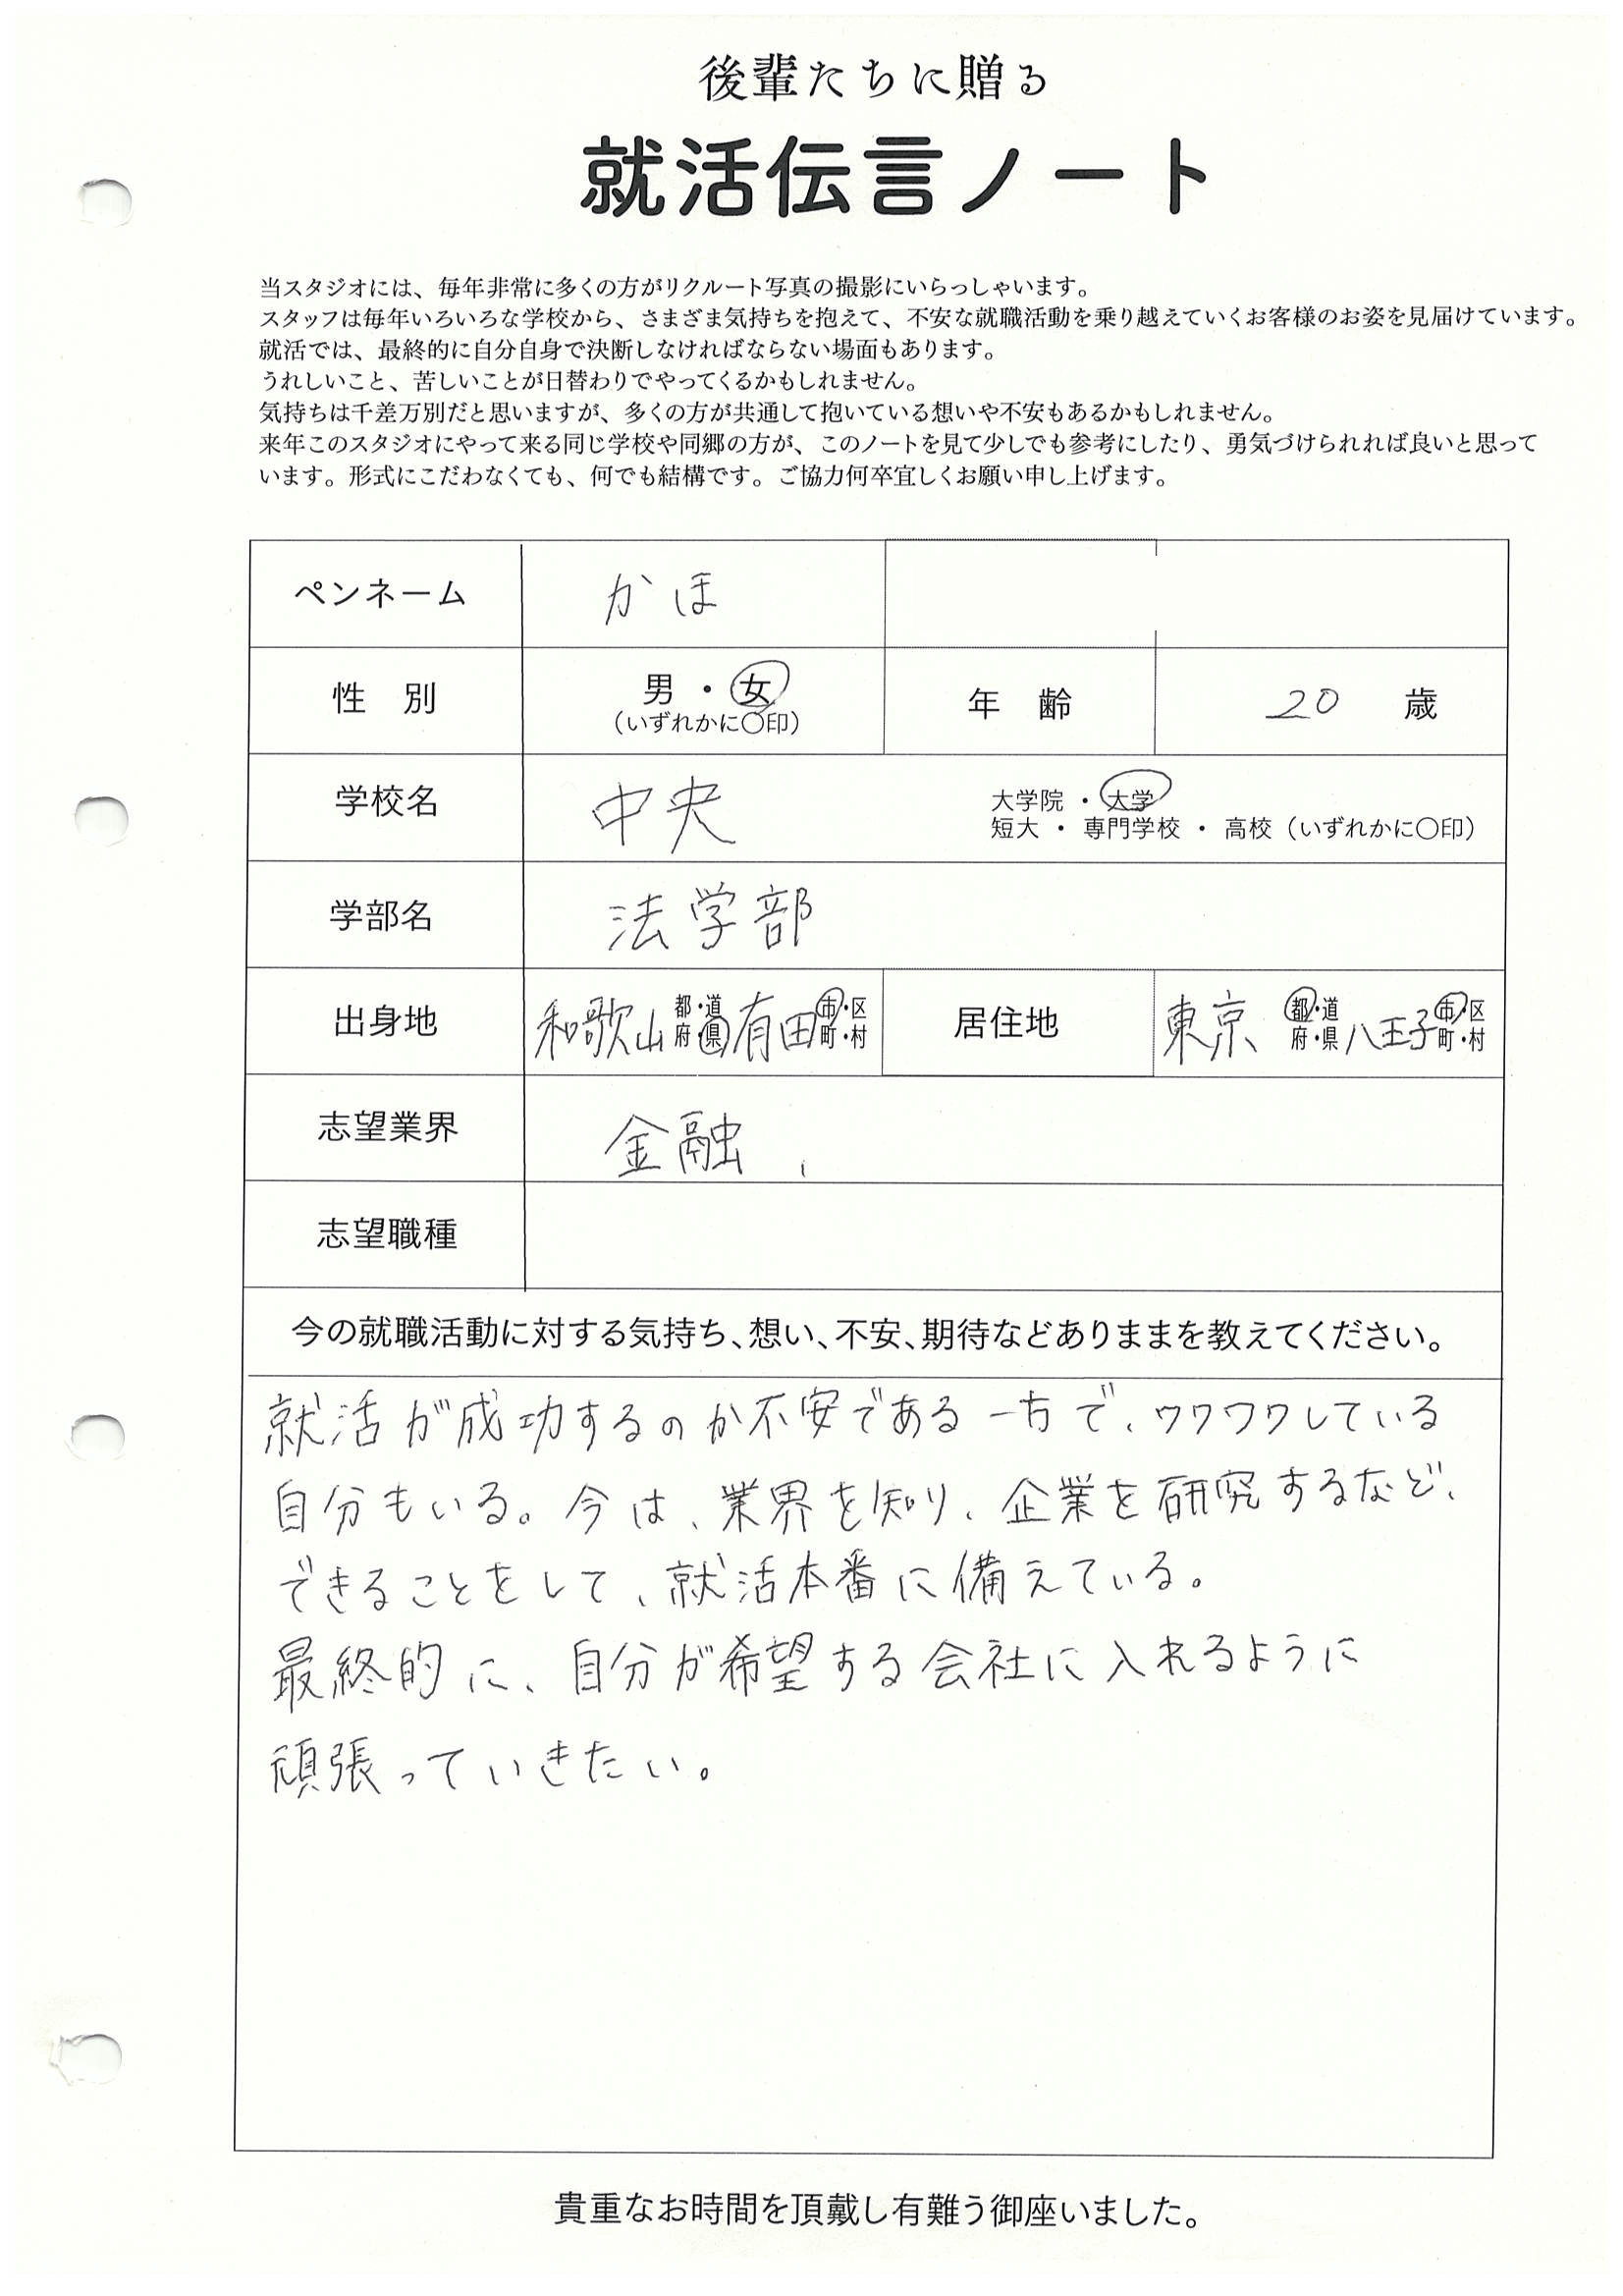 後輩たちに贈る
就活伝言ノート
当スタジオには、毎年非常に多くの方がリクルート写真の撮影にいらっしゃいます。
スタッフは毎年いろいろな学校から、さまざま気持ちを抱えて、不安な就職活動を乗り越えていくお客様のお姿を見届けています。
就活では、最終的に自分自身で決断しなければならない場面もあります。
うれしいこと、苦しいことが日替わりでやってくるかもしれません。
気持ちは千差万別だと思いますが、多くの方が共通して抱いている想いや不安もあるかもしれません。
来年このスタジオにやって来る同じ学校や同郷の方が、このノートを見て少しでも参考にしたり、勇気づけられれば良いと思って
います。形式にこだわなくても、何でも結構です。ご協力何卒宜しくお願い申し上げます。
ペンネーム かほ
性 別 男 ・ 女 (いずれかに○印) 年 齢 20 歳
学校名 中央 大学院 ・ 大学
短大 ・ 専門学校 ・ 高校 (いずれかに○印)
学部名 法学部
出身地 和歌山 都・道 府・県 有田 市・区 町・村 居住地 東京 都・道 府・県 八王子 市・区 町・村
志望業界 金融、
志望職種
今の就職活動に対する気持ち、想い、不安、期待などありままを教えてください。
就活が成功するのか不安である一方で、ワクワクしている
自分もいる。今は、業界を知り、企業を研究するなど、
できることをして、就活本番に備えている。
最終的に、自分が希望する会社に入れるように
頑張っていきたい。
貴重なお時間を頂戴し有難う御座いました。